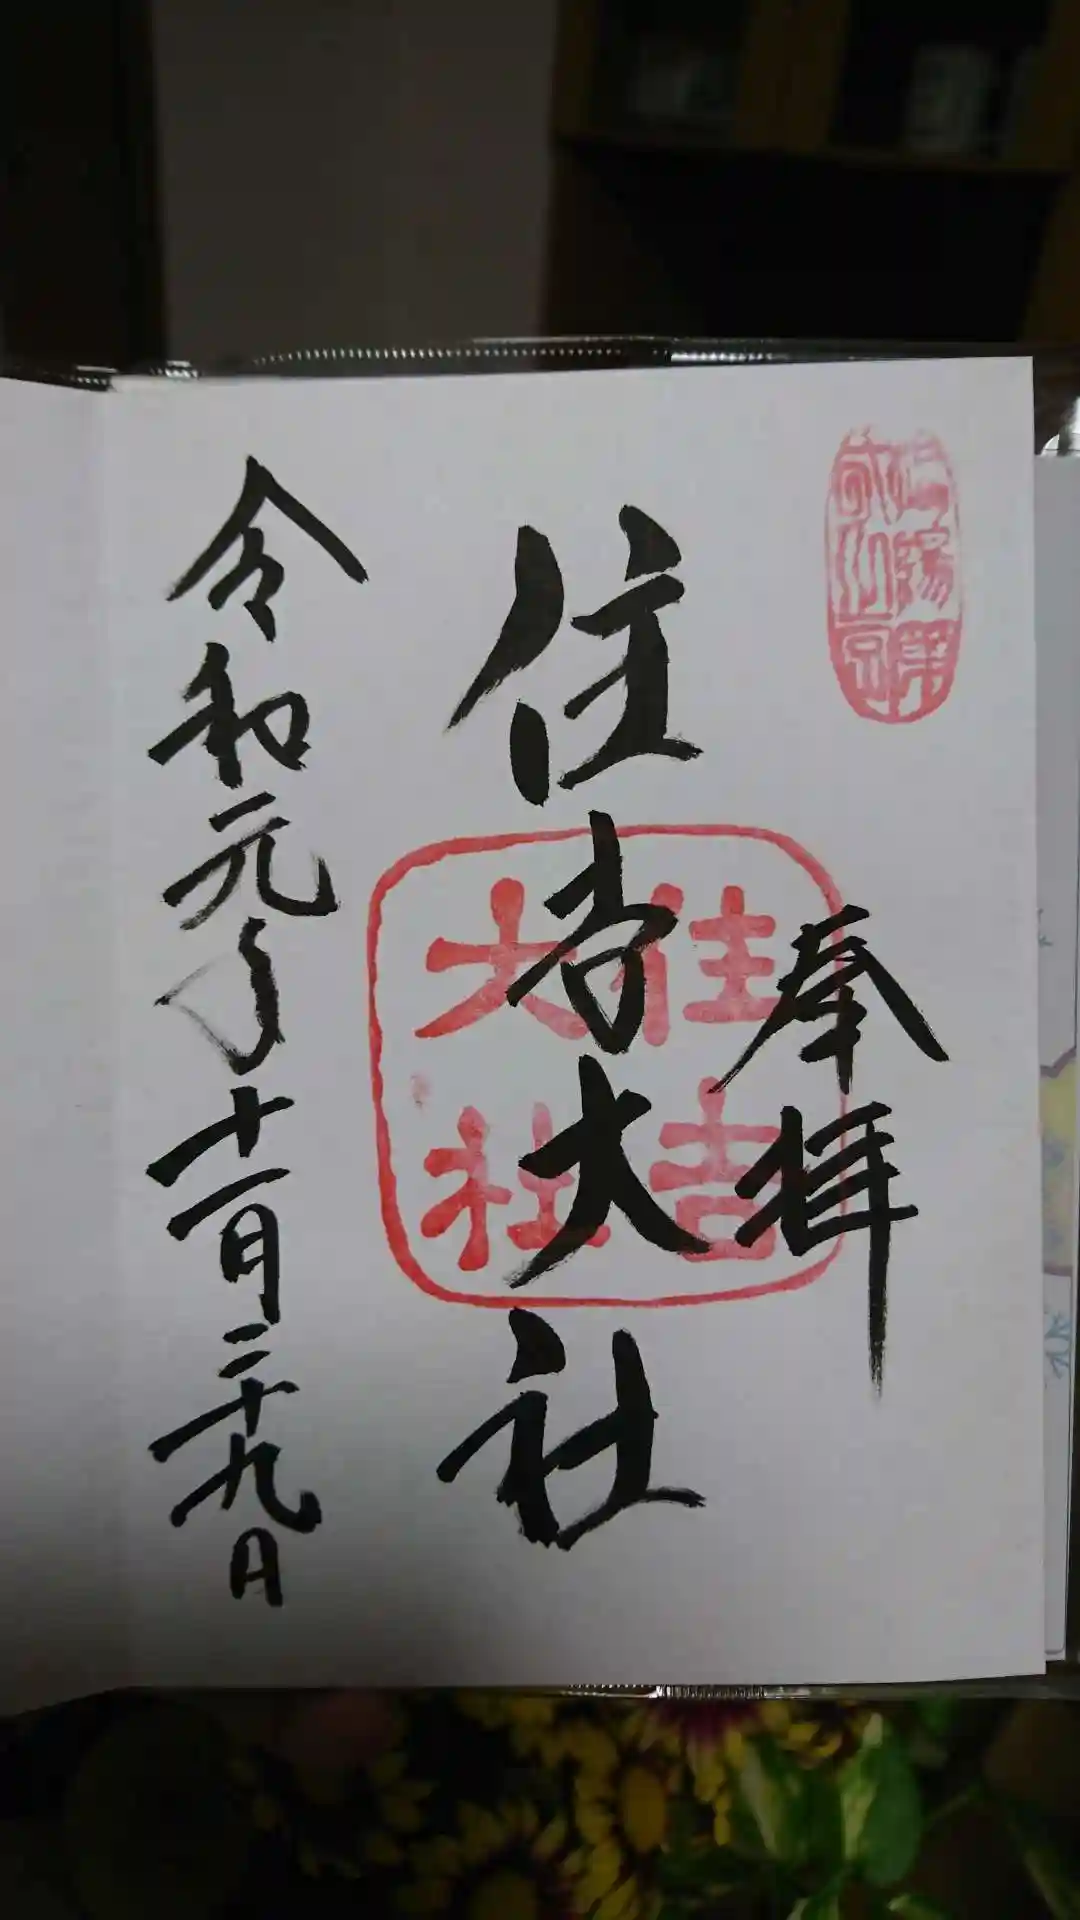 奉拝
住吉大社
住吉
大社
令和元年十一月二十九日